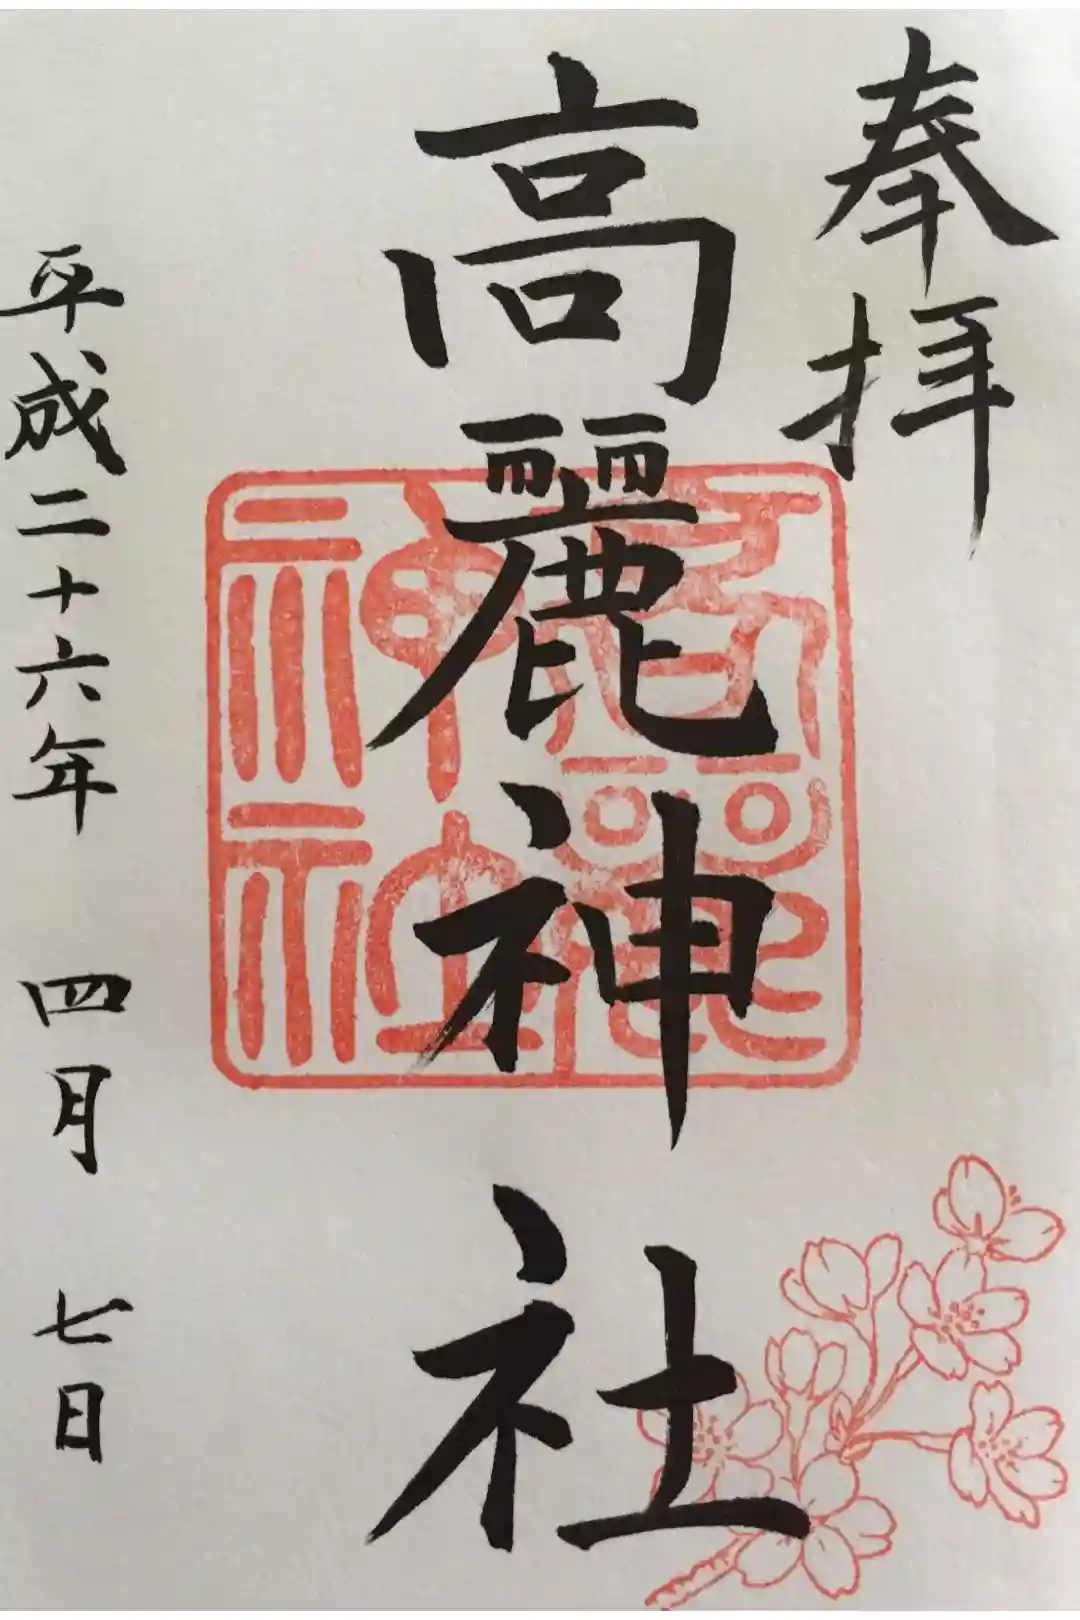 奉拝
高麗神社
高麗神社
平成二十六年 四月 七日